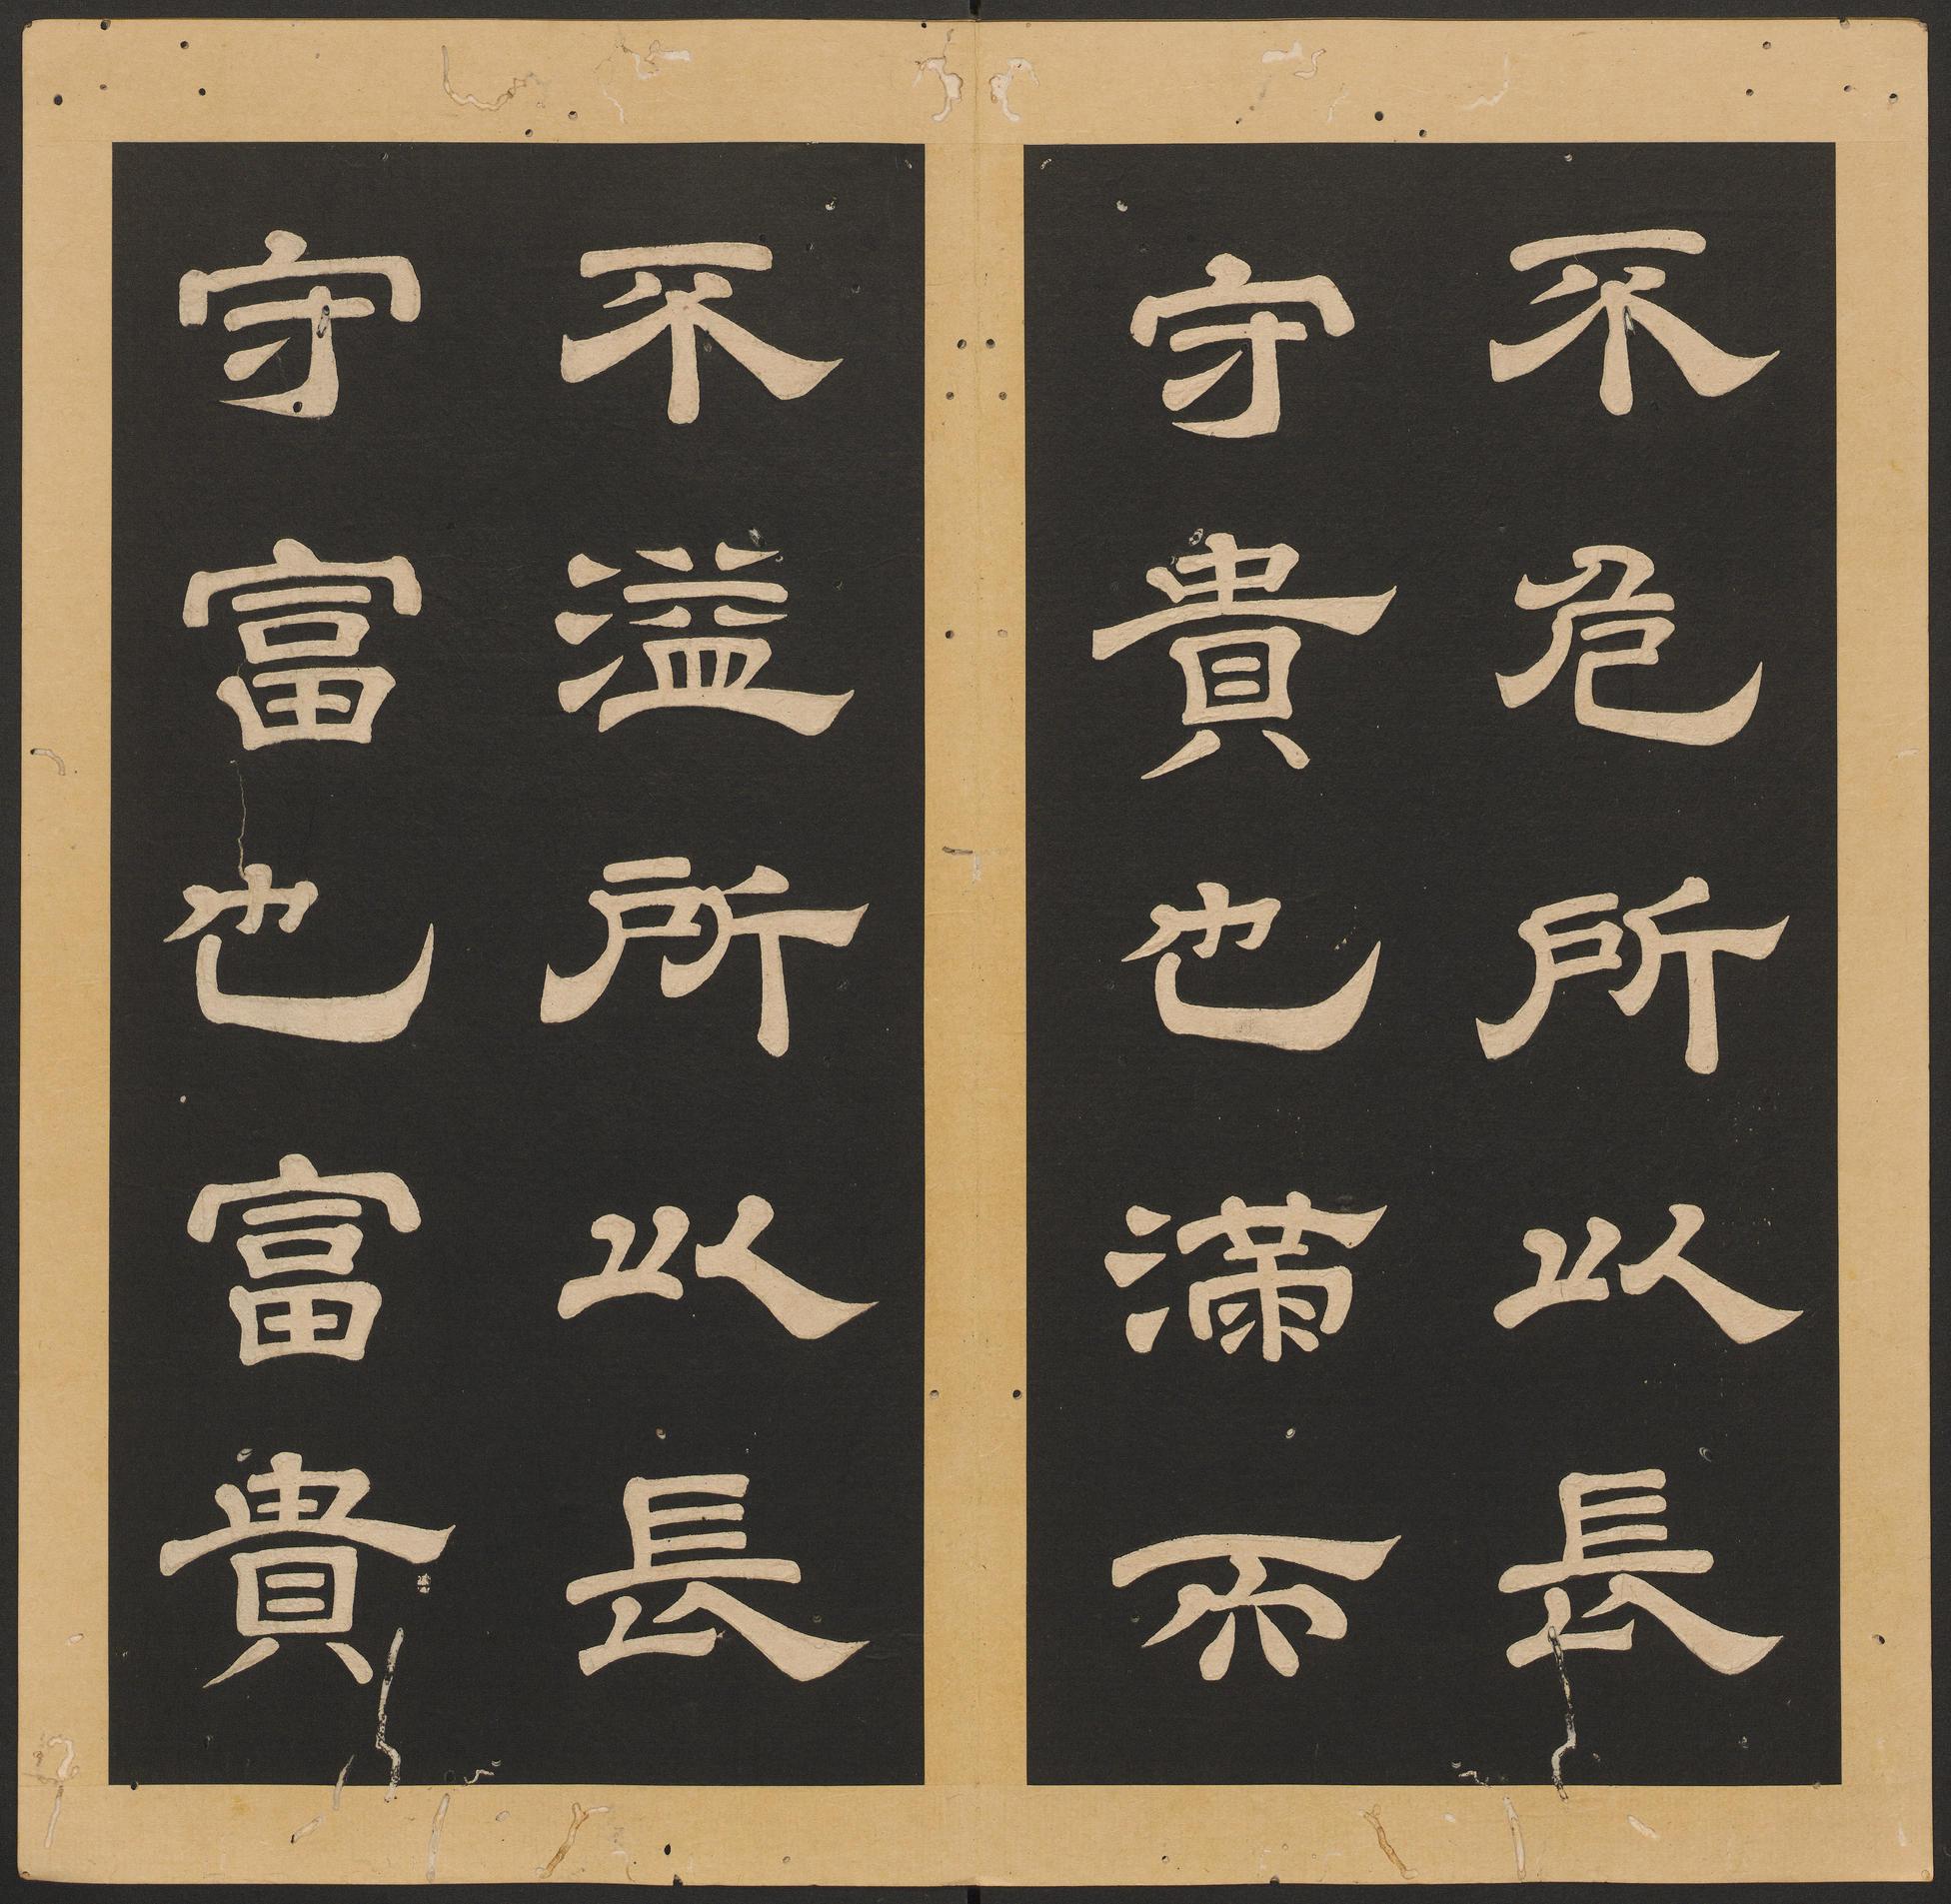 不危所以長
守貴也滿而
不溢所以長
守富也富貴